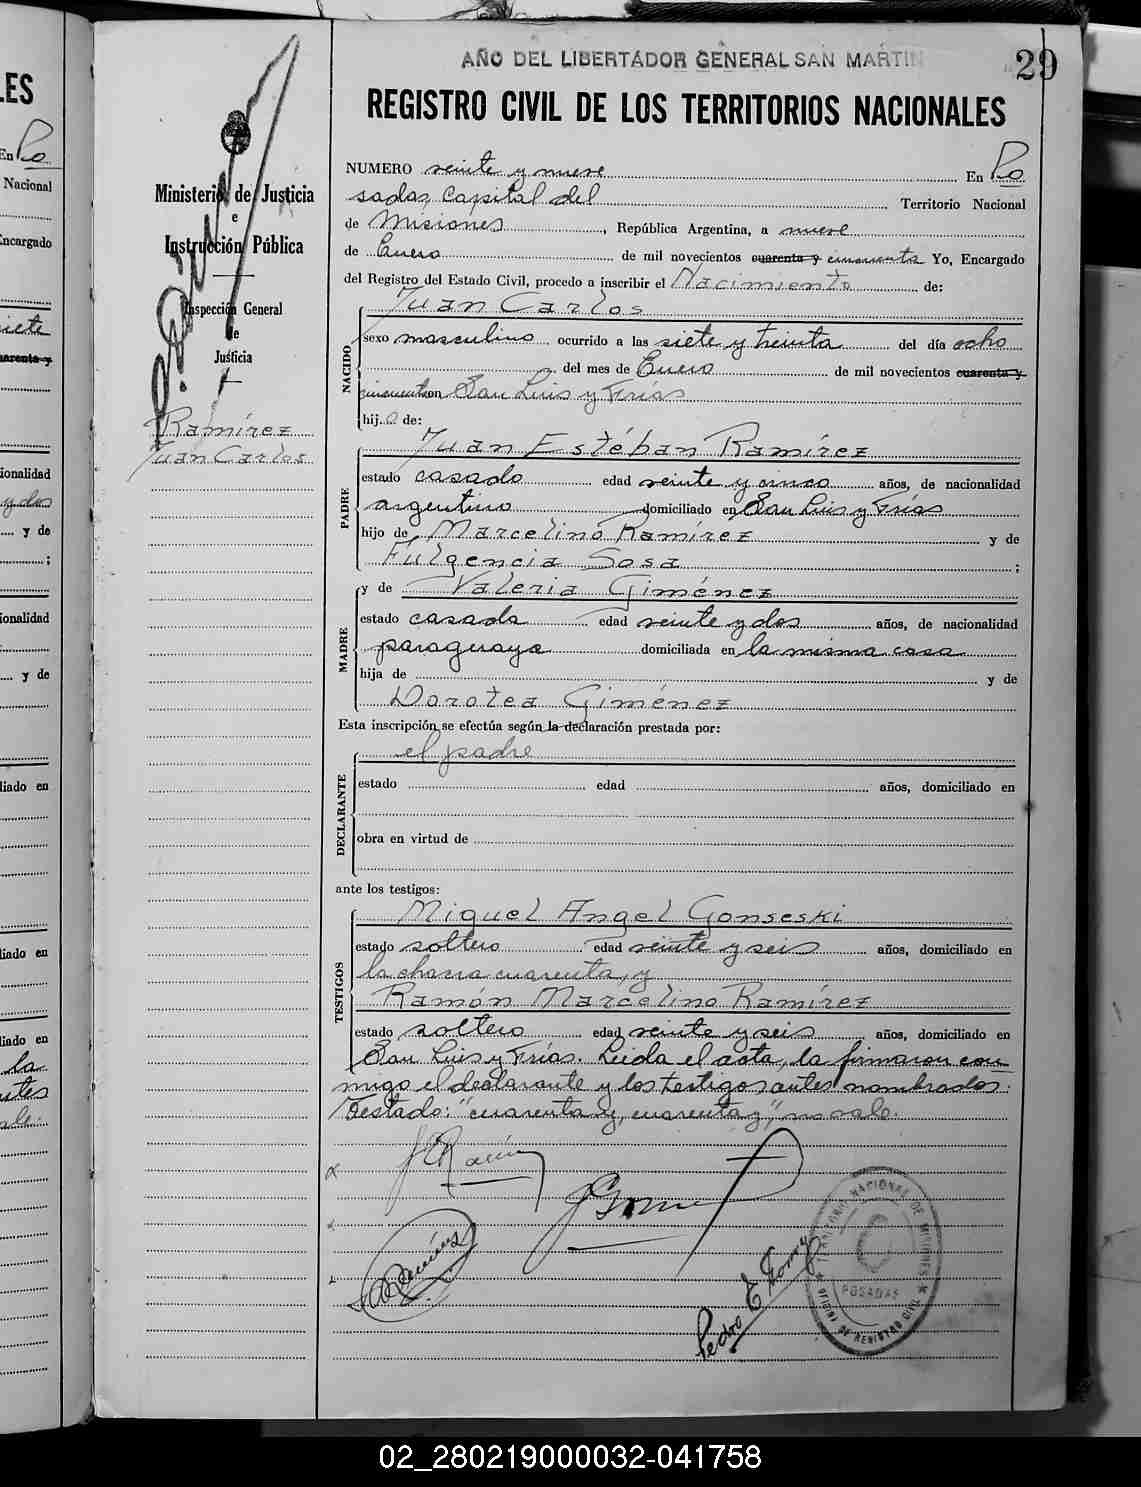 AÑO DEL LIBERTADOR GENERAL SAN MARTIN
29
REGISTRO CIVIL DE LOS TERRITORIOS NACIONALES
Ministerio de Justicia
e
Instrucción Pública
Inspección General
de
Justicia
Ramírez
Juan Carlos
NUMERO veinte y nueve En Po
sadas Capital del Territorio Nacional
de Misiones, República Argentina, a nueve
de Enero de mil novecientos cuarenta y cincuenta Yo, Encargado
del Registro del Estado Civil, procedo a inscribir el Nacimiento de:
NACIDO
Juan Carlos
sexo masculino, ocurrido a las siete y treinta del día ocho
del mes de Enero de mil novecientos cuarenta y
cincuenta en San Luis y Frías
hijo de:
PADRE
Juan Estéban Ramírez
estado casado edad veinte y cinco años, de nacionalidad
argentino domiciliado en San Luis y Frías
hijo de Marcelino Ramírez y de
Fulgencia Sosa ;
MADRE
y de Valeria Giménez
estado casada edad veinte y dos años, de nacionalidad
paraguaya domiciliada en la misma casa
hija de y de
Dorotea Giménez
Esta inscripción se efectúa según la declaración prestada por:
DECLARANTE
el padre
estado edad años, domiciliado en
obra en virtud de
ante los testigos:
TESTIGOS
Miguel Angel Gonseski
estado soltero edad veinte y seis años, domiciliado en
la chacra cuarenta, y
Ramón Marcelino Ramírez
estado soltero edad veinte y seis años, domiciliado en
San Luis y Frías. Leida el acta, la firmaron con
migo el declarante y los testigos antes nombrados.
Testado: "cuarenta y, cuarenta y," no vale.
TERRITORIO NACIONAL DE MISIONES
POSADAS
OFICINA DE REGISTRO CIVIL
02_280219000032-041758